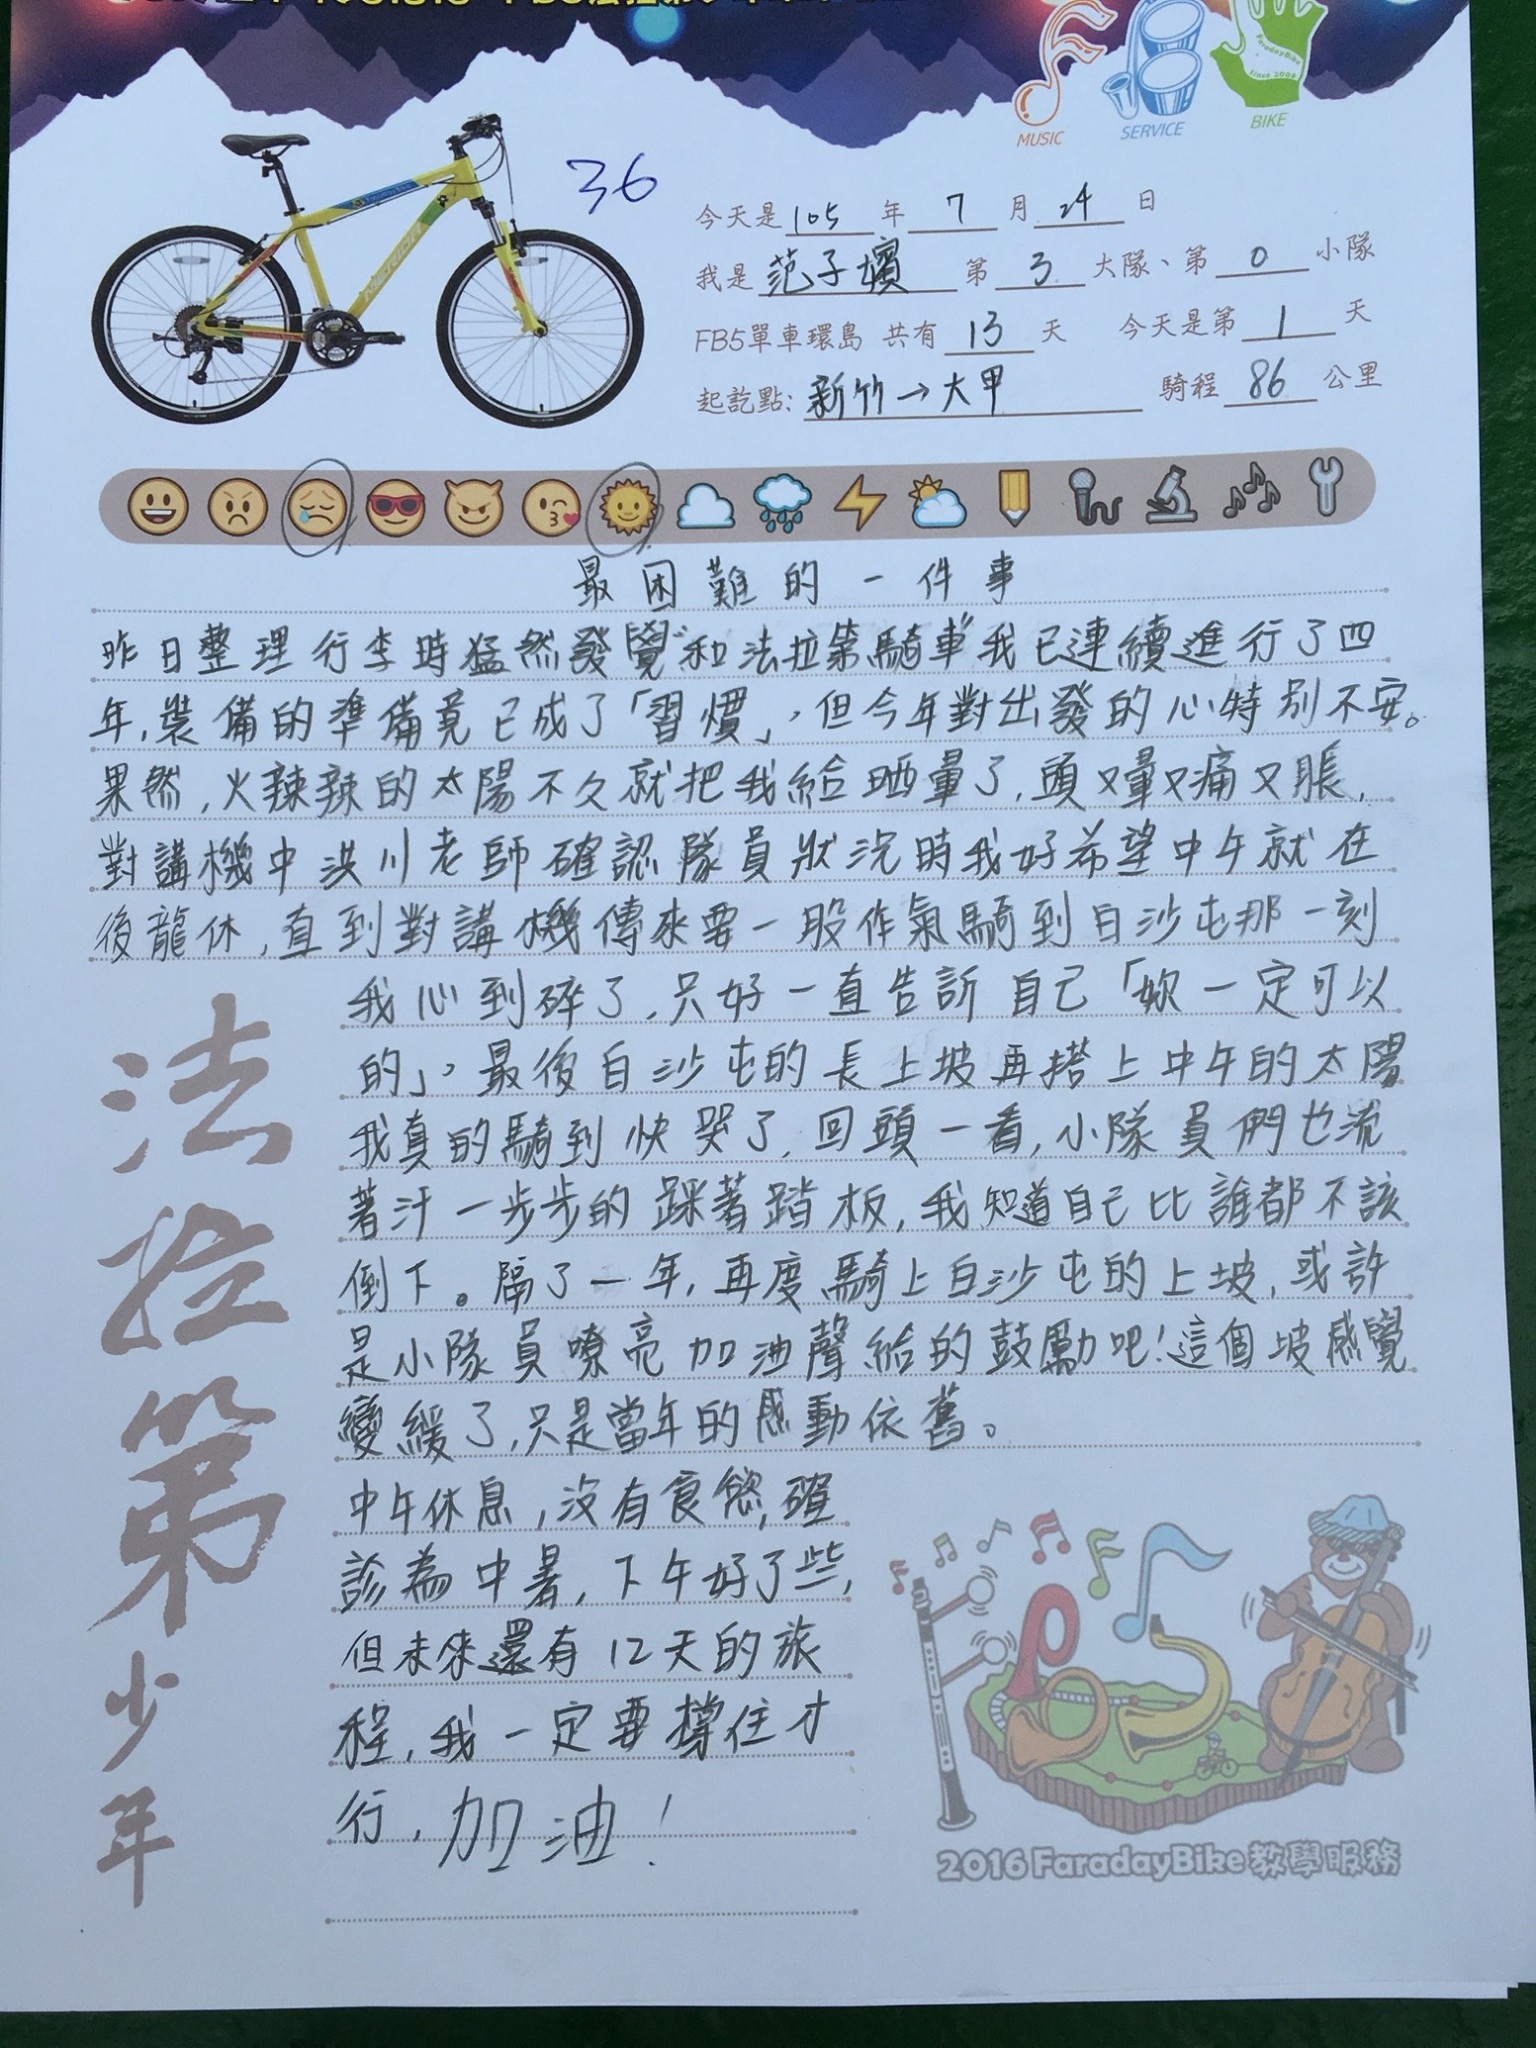 MUSIC
SERVICE
BIKE
FaradayBike
Since 2009
36
今天是 105 年 7 月 24 日
我是 范子嬪 第 3 大隊、第 0 小隊
FB5單車環島 共有 13 天 今天是第 1 天
起訖點: 新竹→大甲 騎程 86 公里
MERIDA
最困難的一件事
昨日整理行李時猛然發覺"和法拉第騎車"我已連續進行了四
年,裝備的準備竟已成了「習慣」,但今年對出發的心特別不安。
果然,火辣辣的太陽不久就把我給晒暈了,頭又暈又痛又脹,
對講機中洪川老師確認隊員狀況時我好希望中午就在
後龍休,直到對講機傳來要一股作氣騎到白沙屯那一刻
我心到碎了,只好一直告訴自己「妳一定可以
的」,最後白沙屯的長上坡再搭上中午的太陽
我真的騎到快哭了,回頭一看,小隊員們也流
著汗一步步的踩著踏板,我知道自己比誰都不該
倒下。隔了一年,再度騎上白沙屯的上坡,或許
是小隊員嘹亮加油聲給的鼓勵吧!這個坡感覺
變緩了,只是當年的感動依舊。
中午休息,沒有食慾,確
診為中暑,下午好了些,
但未來還有12天的旅
程,我一定要撐住才
行,加油!
法拉第少年
2016 FaradayBike 教學服務